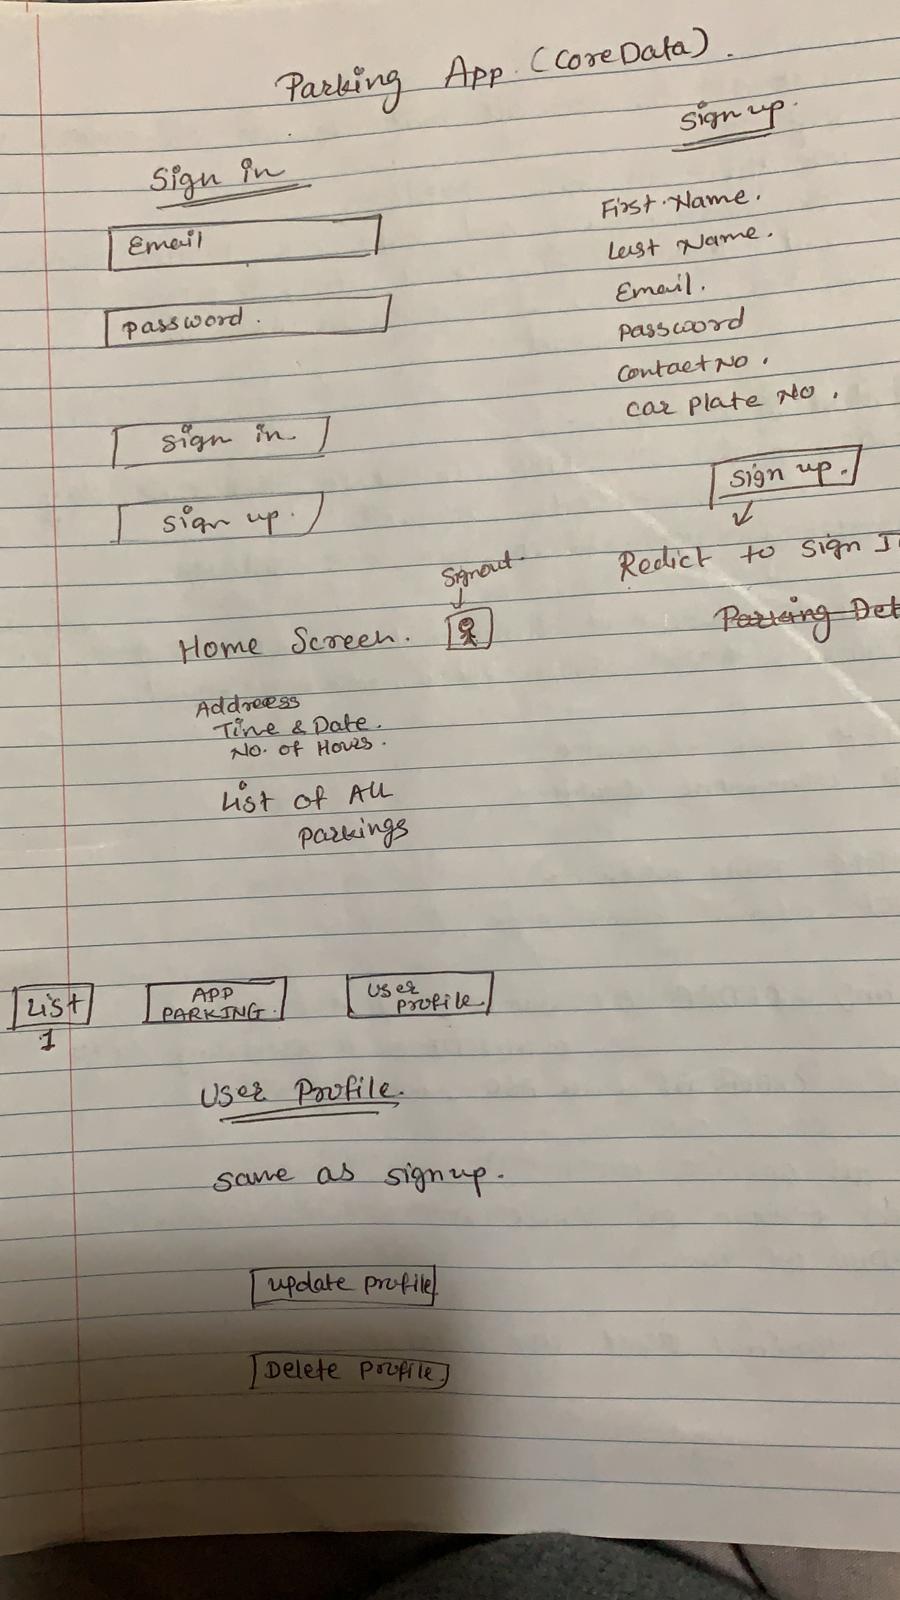 Parking App. (CoreData).
Sign in
Email
password.
Sign in
Sign up.
Sign up.
First Name.
Last Name.
Email.
password
Contact No.
Car Plate No.
Sign up.
Redict to Sign I
Parking Det
Signout
Home Screen.
Addreess
Time & Date.
No. of Hours.
List of All
parkings
List
1
APP
PARKING.
User
profile.
User Profile.
same as signup.
update profile
Delete profile.